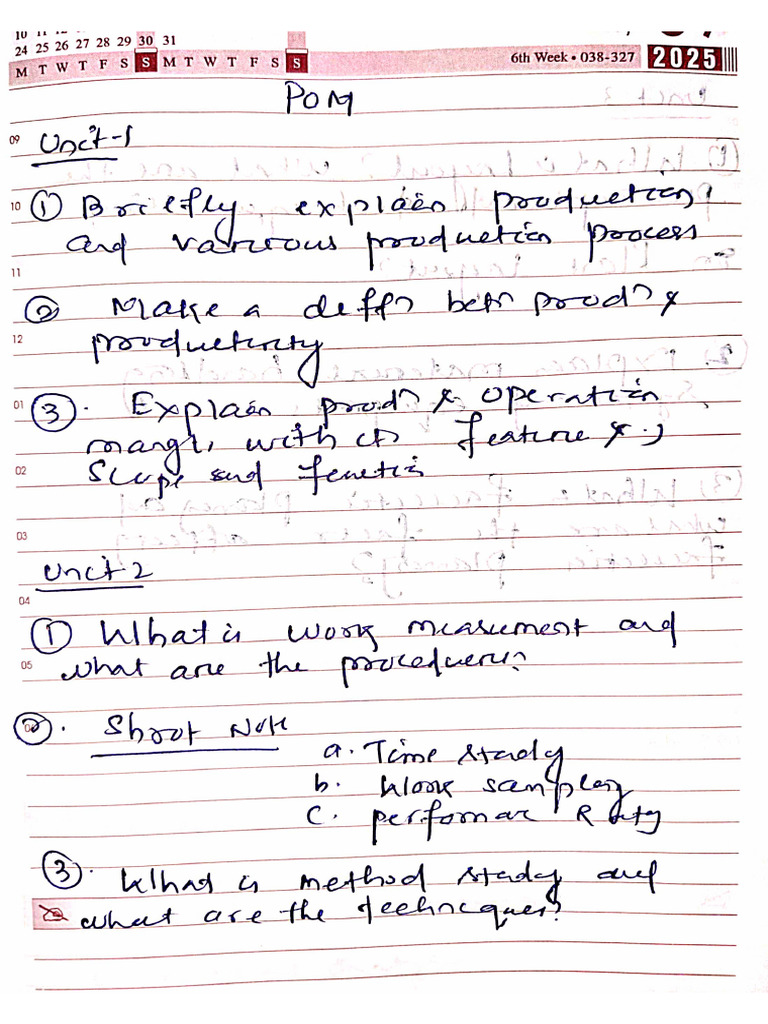 24 25 26 27 28 29 30 31
M T W T F S S M T W T F S S
6th Week • 038-327 2025
POM
09
Unit-1
10 ① Briefly explain production
and various production process
11
② Make a diffn betn prodn &
12
productivity
01 ③. Explain prodn & operation
mangt, with its feature &
02 Scope and function
03
Unit-2
04
① What is work measument and
05 what are the procedures?
②. Short Note
a. Time study
b. Work sampling
c. performan Rating
③. What is method study and
what are the techniques?